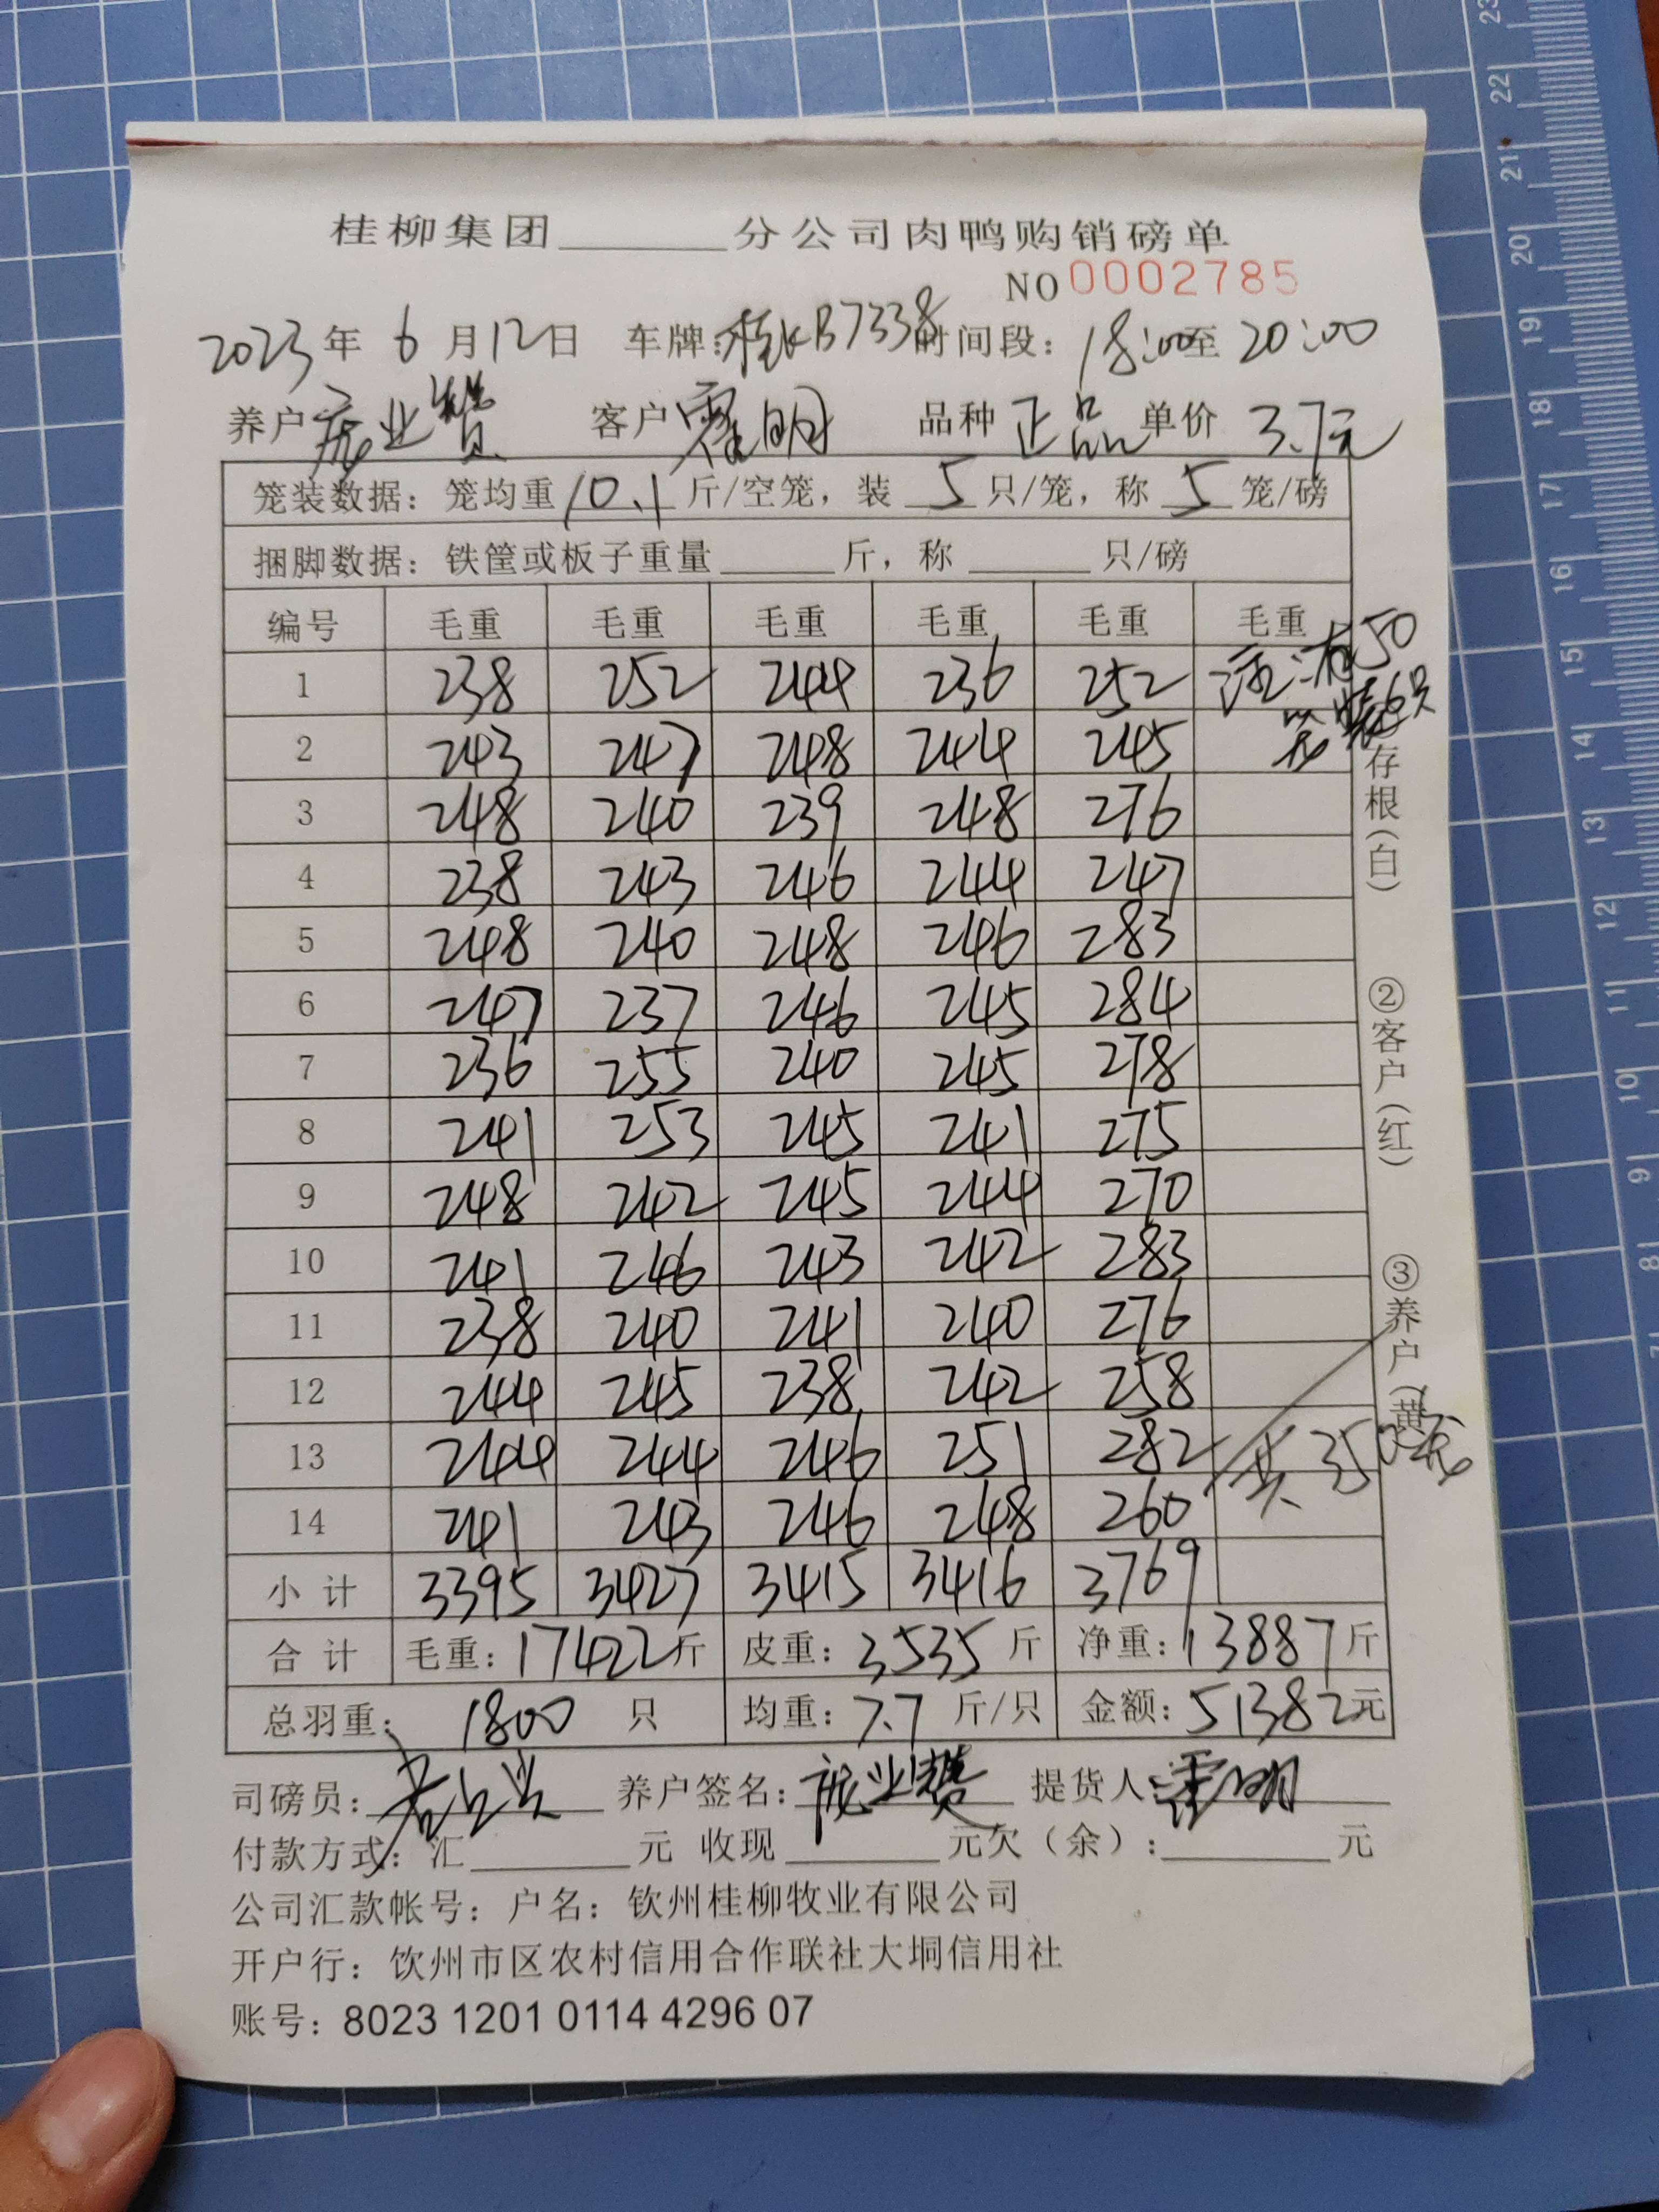 桂柳集团______分公司肉鸭购销磅单
NO 0002785
2023年 6月12日 车牌:桂KB7338 时间段:18:00至20:00
养户 庞业赞 客户 霍明 品种 正品 单价 3.7元
笼装数据:笼均重10.1斤/空笼,装 5 只/笼,称 5 笼/磅
捆脚数据:铁筐或板子重量______斤,称______只/磅
编号 毛重 毛重 毛重 毛重 毛重 毛重
1 238 252 244 236 252 注:有50
笼装6只
2 243 247 248 244 245
3 248 240 239 248 276
4 238 243 246 244 247
5 248 240 248 246 283
6 247 237 246 245 284
7 236 255 240 245 278
8 241 253 245 241 275
9 248 242 245 244 270
10 241 246 243 242 283
11 238 240 241 240 276
12 244 245 238 242 258
13 244 244 246 251 282 共350笼
14 241 243 246 248 260
小计 3395 3427 3415 3416 3769
合计 毛重:17422斤 皮重:3535斤 净重:13887斤
总羽重:1800 只 均重:7.7 斤/只 金额:51382元
司磅员: 养户签名:庞业赞 提货人:霍明
付款方式:汇______元 收现______元欠(余):______元
公司汇款帐号:户名:钦州桂柳牧业有限公司
开户行:钦州市区农村信用合作联社大垌信用社
账号:8023 1201 0114 4296 07
存根(白) ②客户(红) ③养户(黄)